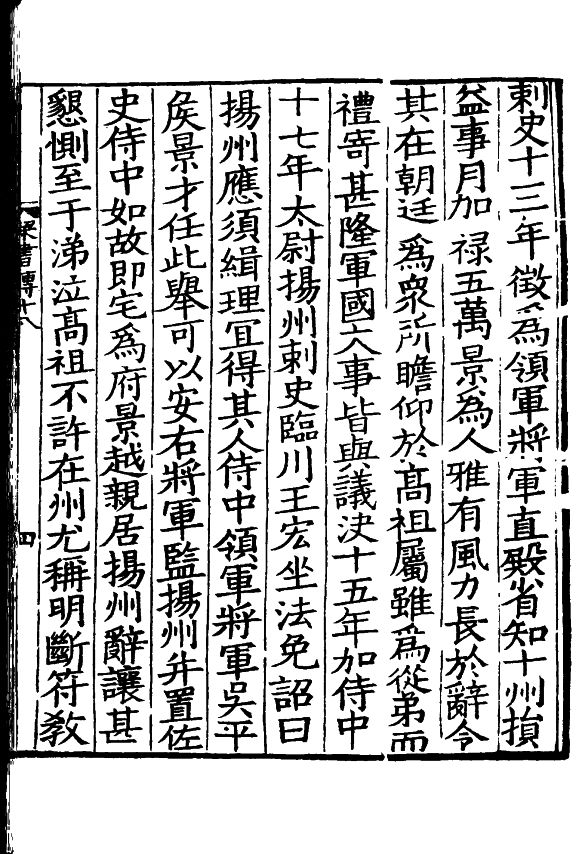 刺史十三年徵爲領軍將軍直殿省知十州損
益事月加祿五萬景爲人雅有風力長於辭令
其在朝廷爲衆所瞻仰於髙祖屬雖爲從弟而
禮寄甚隆軍國大事皆與議决十五年加侍中
十七年太尉揚州刺史臨川王宏坐法免詔曰
揚州應須緝理宜得其人侍中領軍將軍吳平
矦景才任此舉可以安右將軍監揚州幷置佐
史侍中如故即宅爲府景越親居揚州辭讓甚
懇惻至于涕泣髙祖不許在州尤稱明斷符敎
梁書傳十八
四